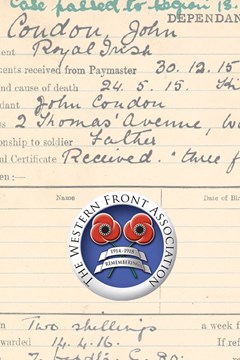 Case passed to Region 13.
DEPENDAN
Condon, John
ent Royal Irish
ents received from Paymaster 30. 12. 15
and cause of death 24. 5. 15.
dant John Condon
s 2 Thomas' Avenue, W
onship to soldier Father
al Certificate Received. "three f
en:—
Name
Date of Birth
THE WESTERN FRONT ASSOCIATION
1914 - 1918
REMEMBERING
n Two shillings a week f
warded 14. 4. 16. If ref